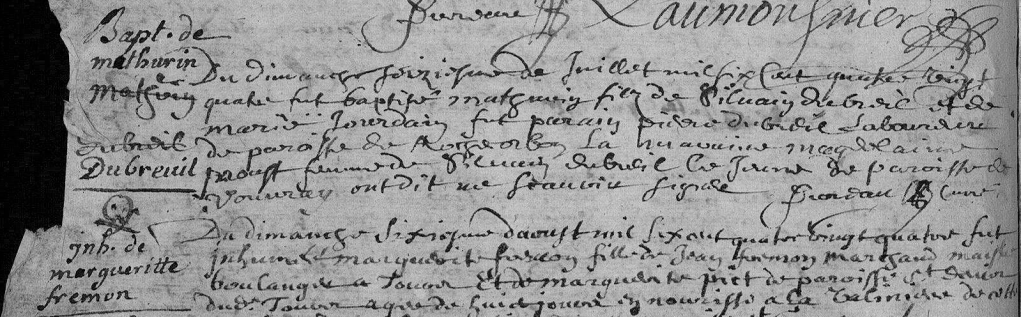 Bapt. de
mathurin
Mathurin
dubreil
Dubreuil
Laumonsnier
Du dimanche seiziesme de Juillet mil six Cent quatre vingt
quatre fut baptisé mathurin filz de Siluain dubreil et de
marie Jourdain fut parain pierre dubreil Laboureur
de paroisse de Rochecorbon La maraine magdelaine
proust femme de Siluain dubreil le Jeune de paroisse de
vouuray ont dit ne scauoir signer
Curé
inh. de
margueritte
fremon
Du dimanche sixiesme daoust mil six cent quatre vingt quatre fut
inhumée marguerite fremon fille de Jean fremon marchand
boulanger a Tours Et de marguerite de paroisse
dud. Tours agee de huit jours en nourisse a la de cette